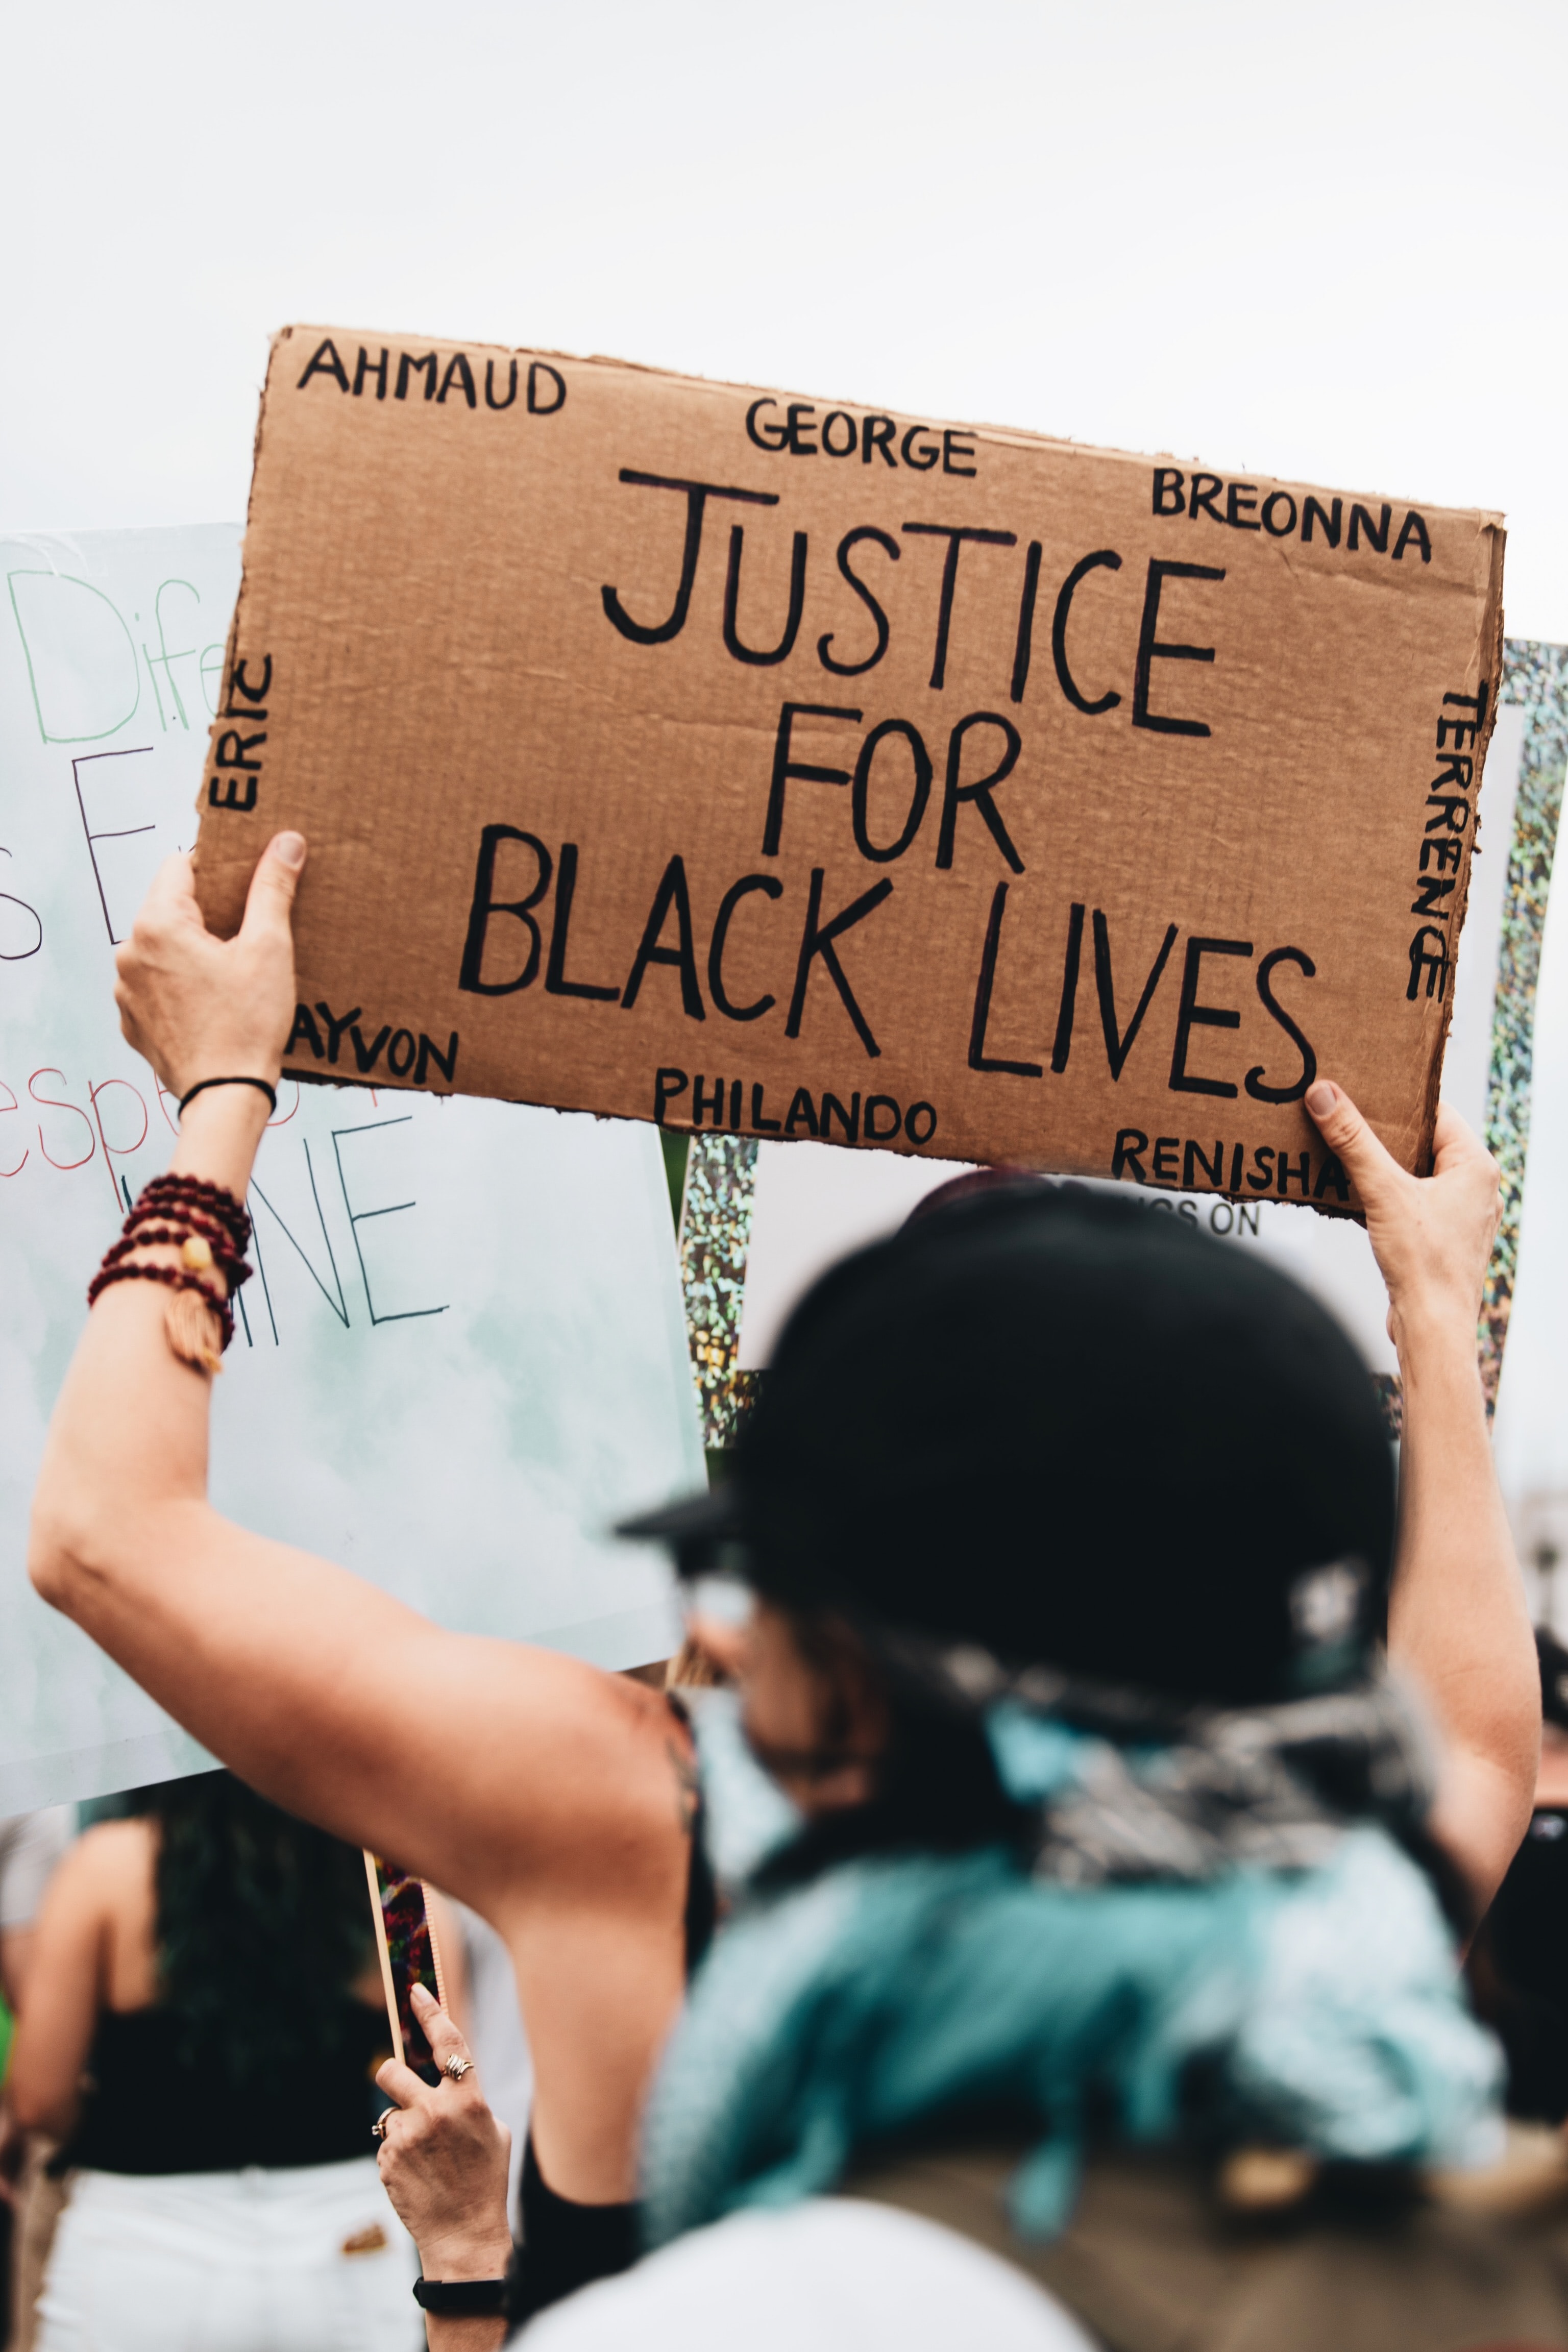 AHMAUD
GEORGE
BREONNA
ERIC
JUSTICE
FOR
BLACK LIVES
TERRENCE
AYVON
PHILANDO
RENISHA
Dife
E
s
espe
INE
ON